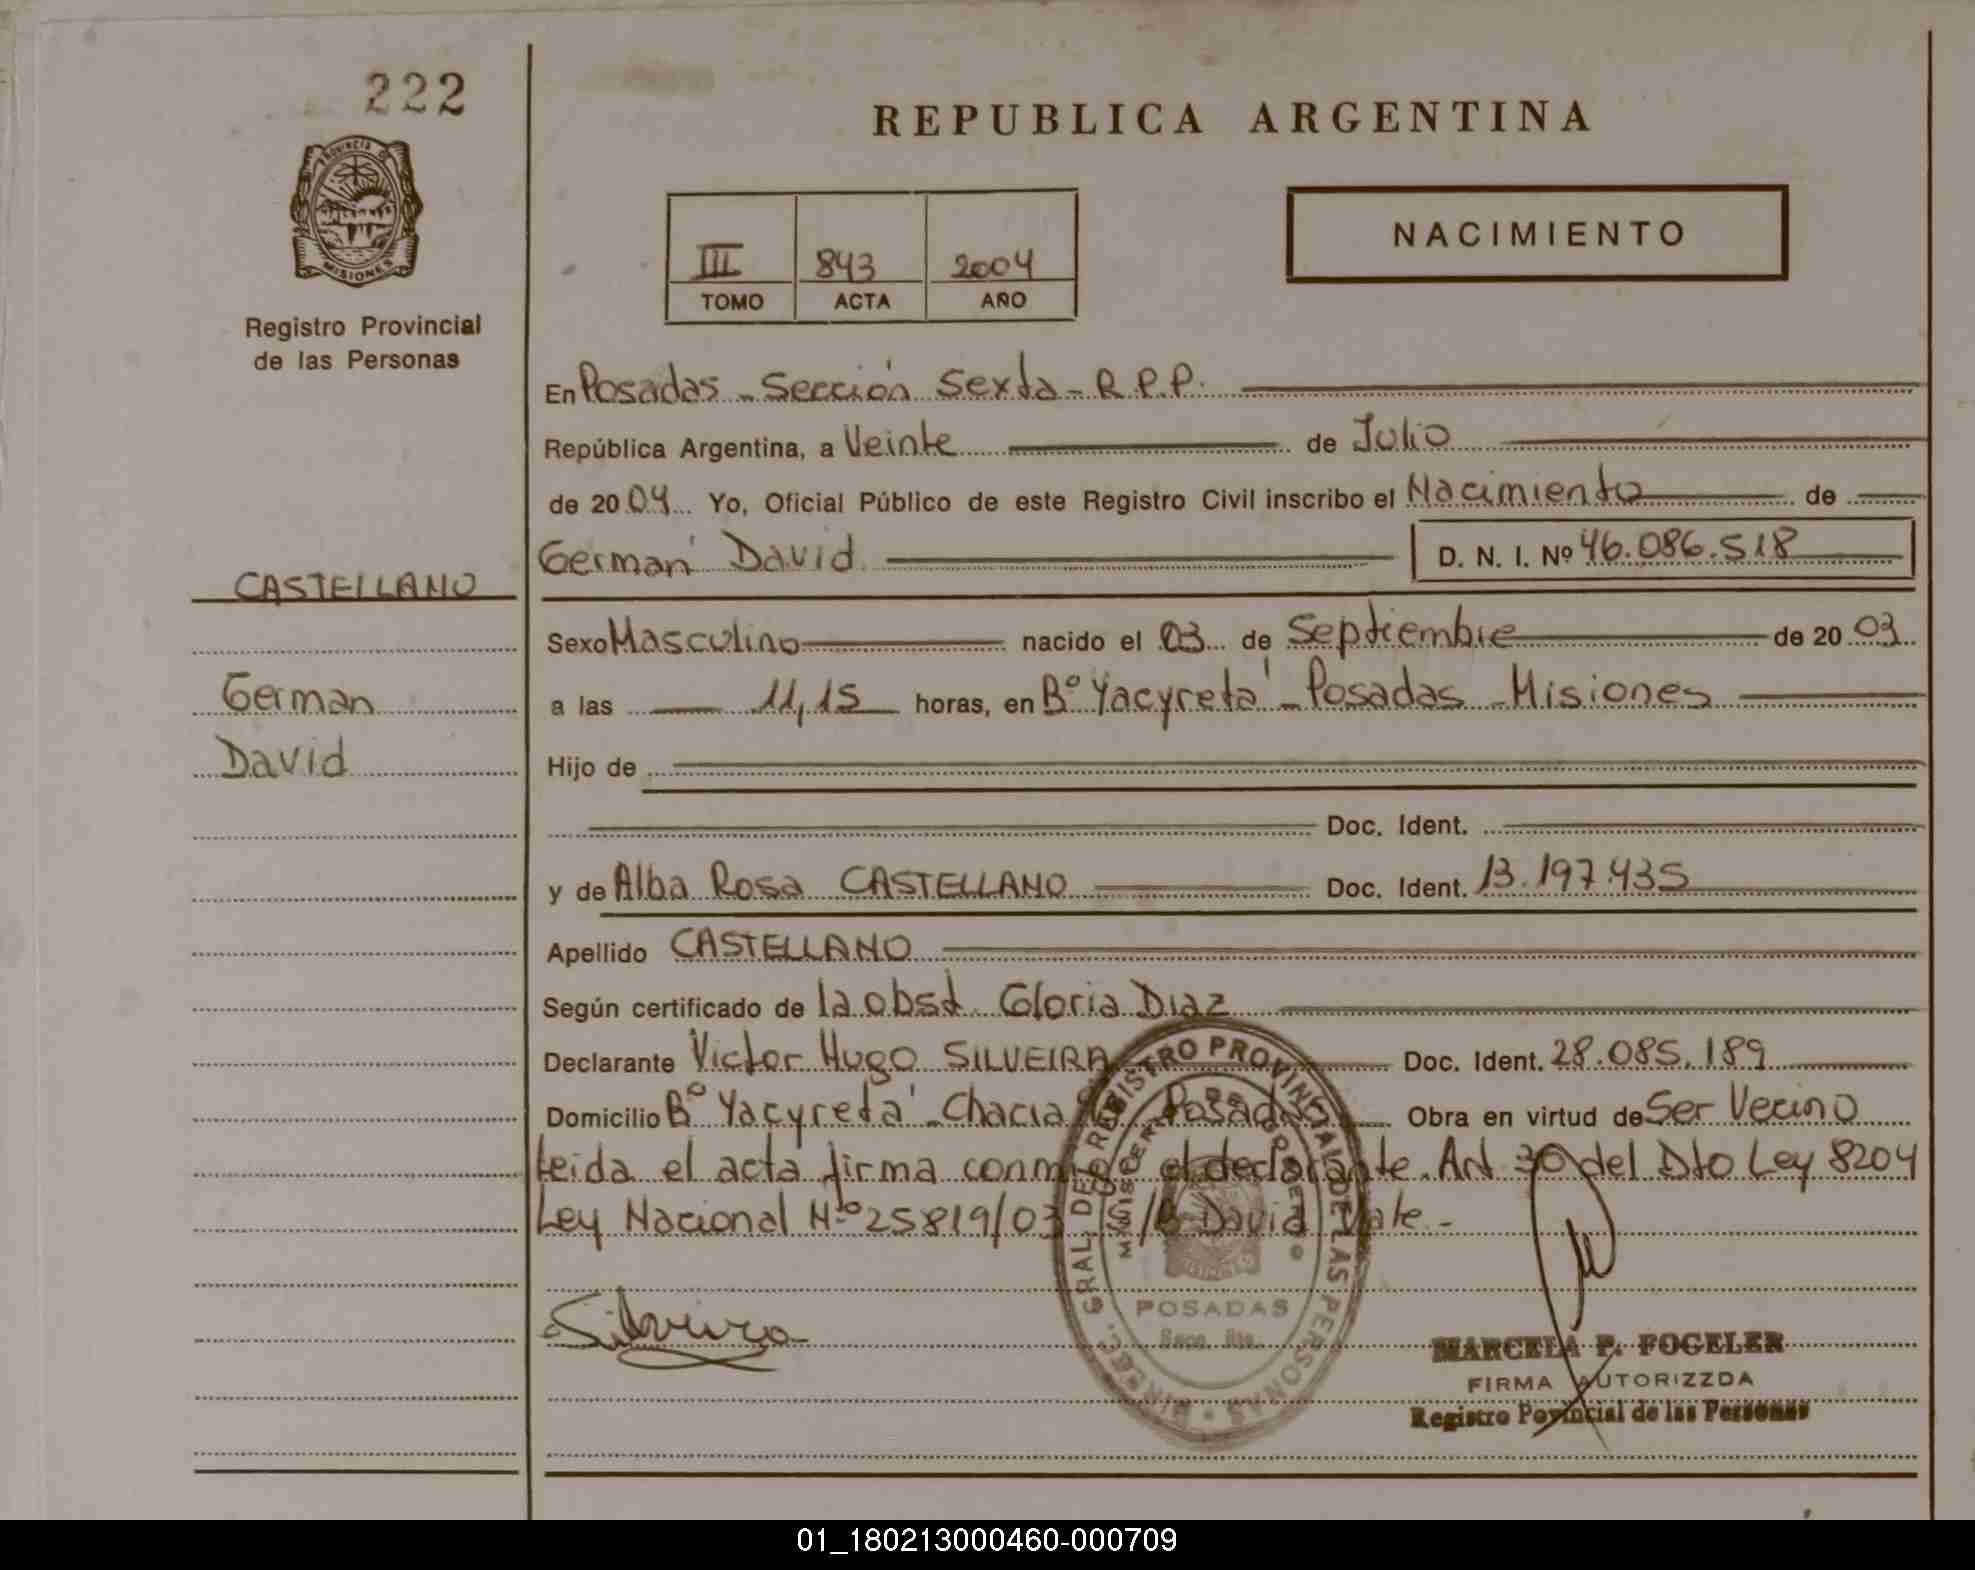 222
PROVINCIA DE
MISIONES
Registro Provincial
de las Personas
CASTELLANO
German
David
REPUBLICA ARGENTINA
NACIMIENTO
III 843 2004
TOMO ACTA AÑO
En Posadas - Sección Sexta - R.P.P.
República Argentina, a Veinte de Julio
de 2004 Yo, Oficial Público de este Registro Civil inscribo el Nacimiento de
Germán David D. N. I. Nº 46.086.518
Sexo Masculino nacido el 03 de Septiembre de 2003
a las 11,15 horas, en Bº Yacyretá - Posadas - Misiones
Hijo de
Doc. Ident.
y de Alba Rosa CASTELLANO Doc. Ident. 13.197.435
Apellido CASTELLANO
Según certificado de la obst. Gloria Diaz
Declarante Victor Hugo SILVEIRA Doc. Ident. 28.085.189
Domicilio Bº Yacyretá - Chacra Posadas Obra en virtud de Ser Vecino
Leida el acta firma conmigo el declarante. Art 30 del Dto Ley 8204
Ley Nacional Nº 25819/03 David Vale.-
Silveira
DIREC. GRAL. DEL REGISTRO PROVINCIAL DE LAS PERSONAS
MINISTERIO DE GOBIERNO
MISIONES
POSADAS
MARCELA P. FOGELER
FIRMA AUTORIZZDA
Registro Povincial de las Personas
01_180213000460-000709